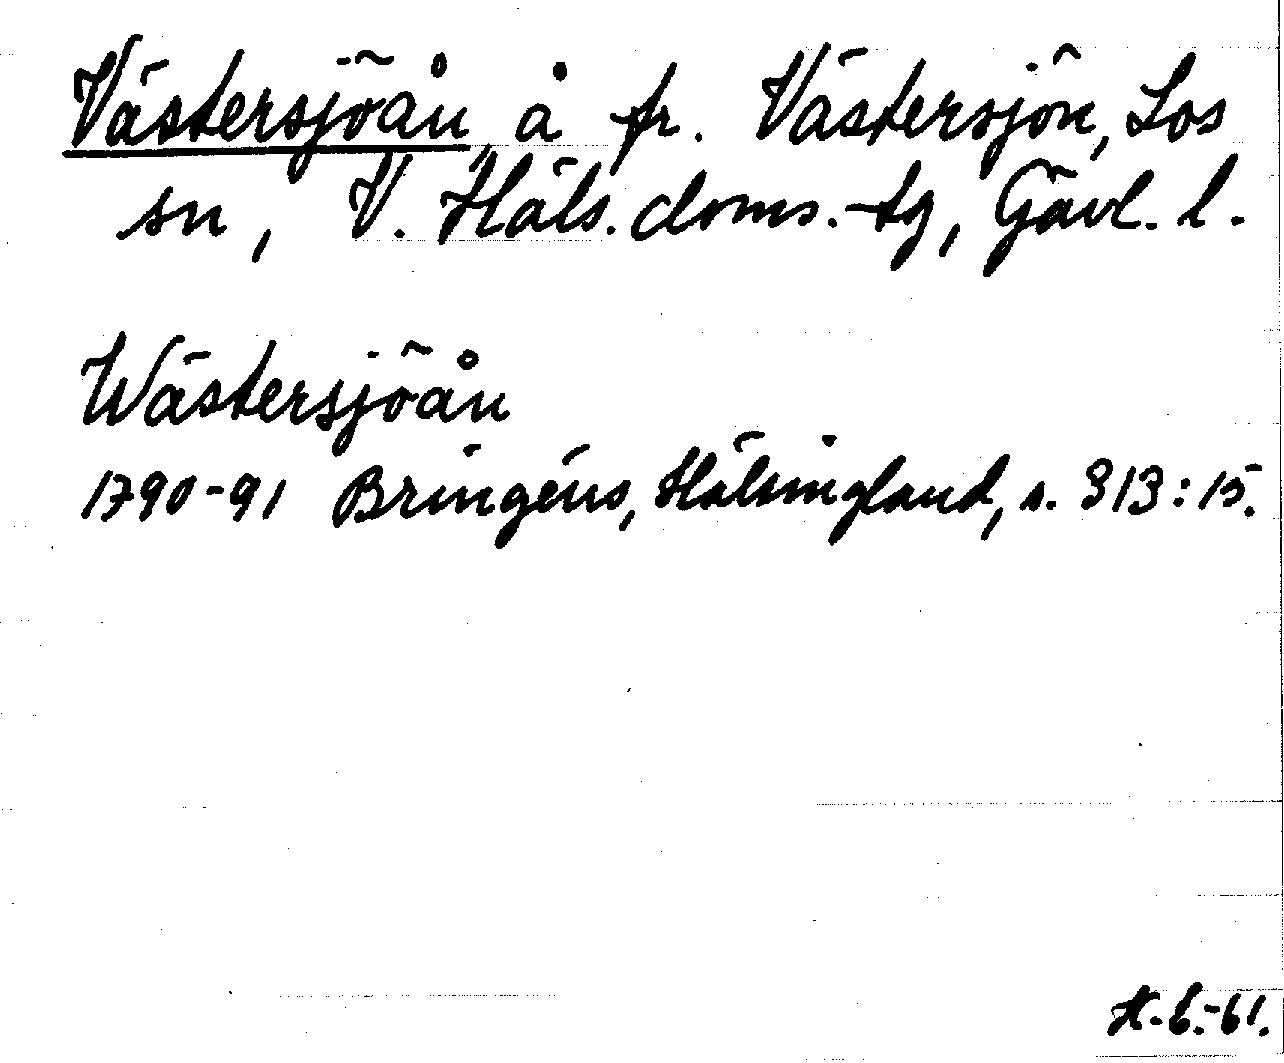 Västersjöån, å fr. Västersjön, Los
sn, V. Häls. doms.-tg, Gävl. l.
Wästersjöån
1790-91 Bringéus, Hälsingland, s. 313:15.
H.B.-61.